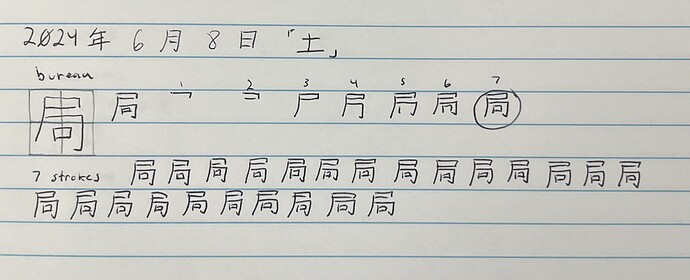 2024年 6月 8日 「土」
bureau 1 2 3 4 5 6 7
局 局 尸 局
7 strokes 局 局 局 局 局 局 局 局 局 局 局 局 局 局
局 局 局 局 局 局 局 局 局 局